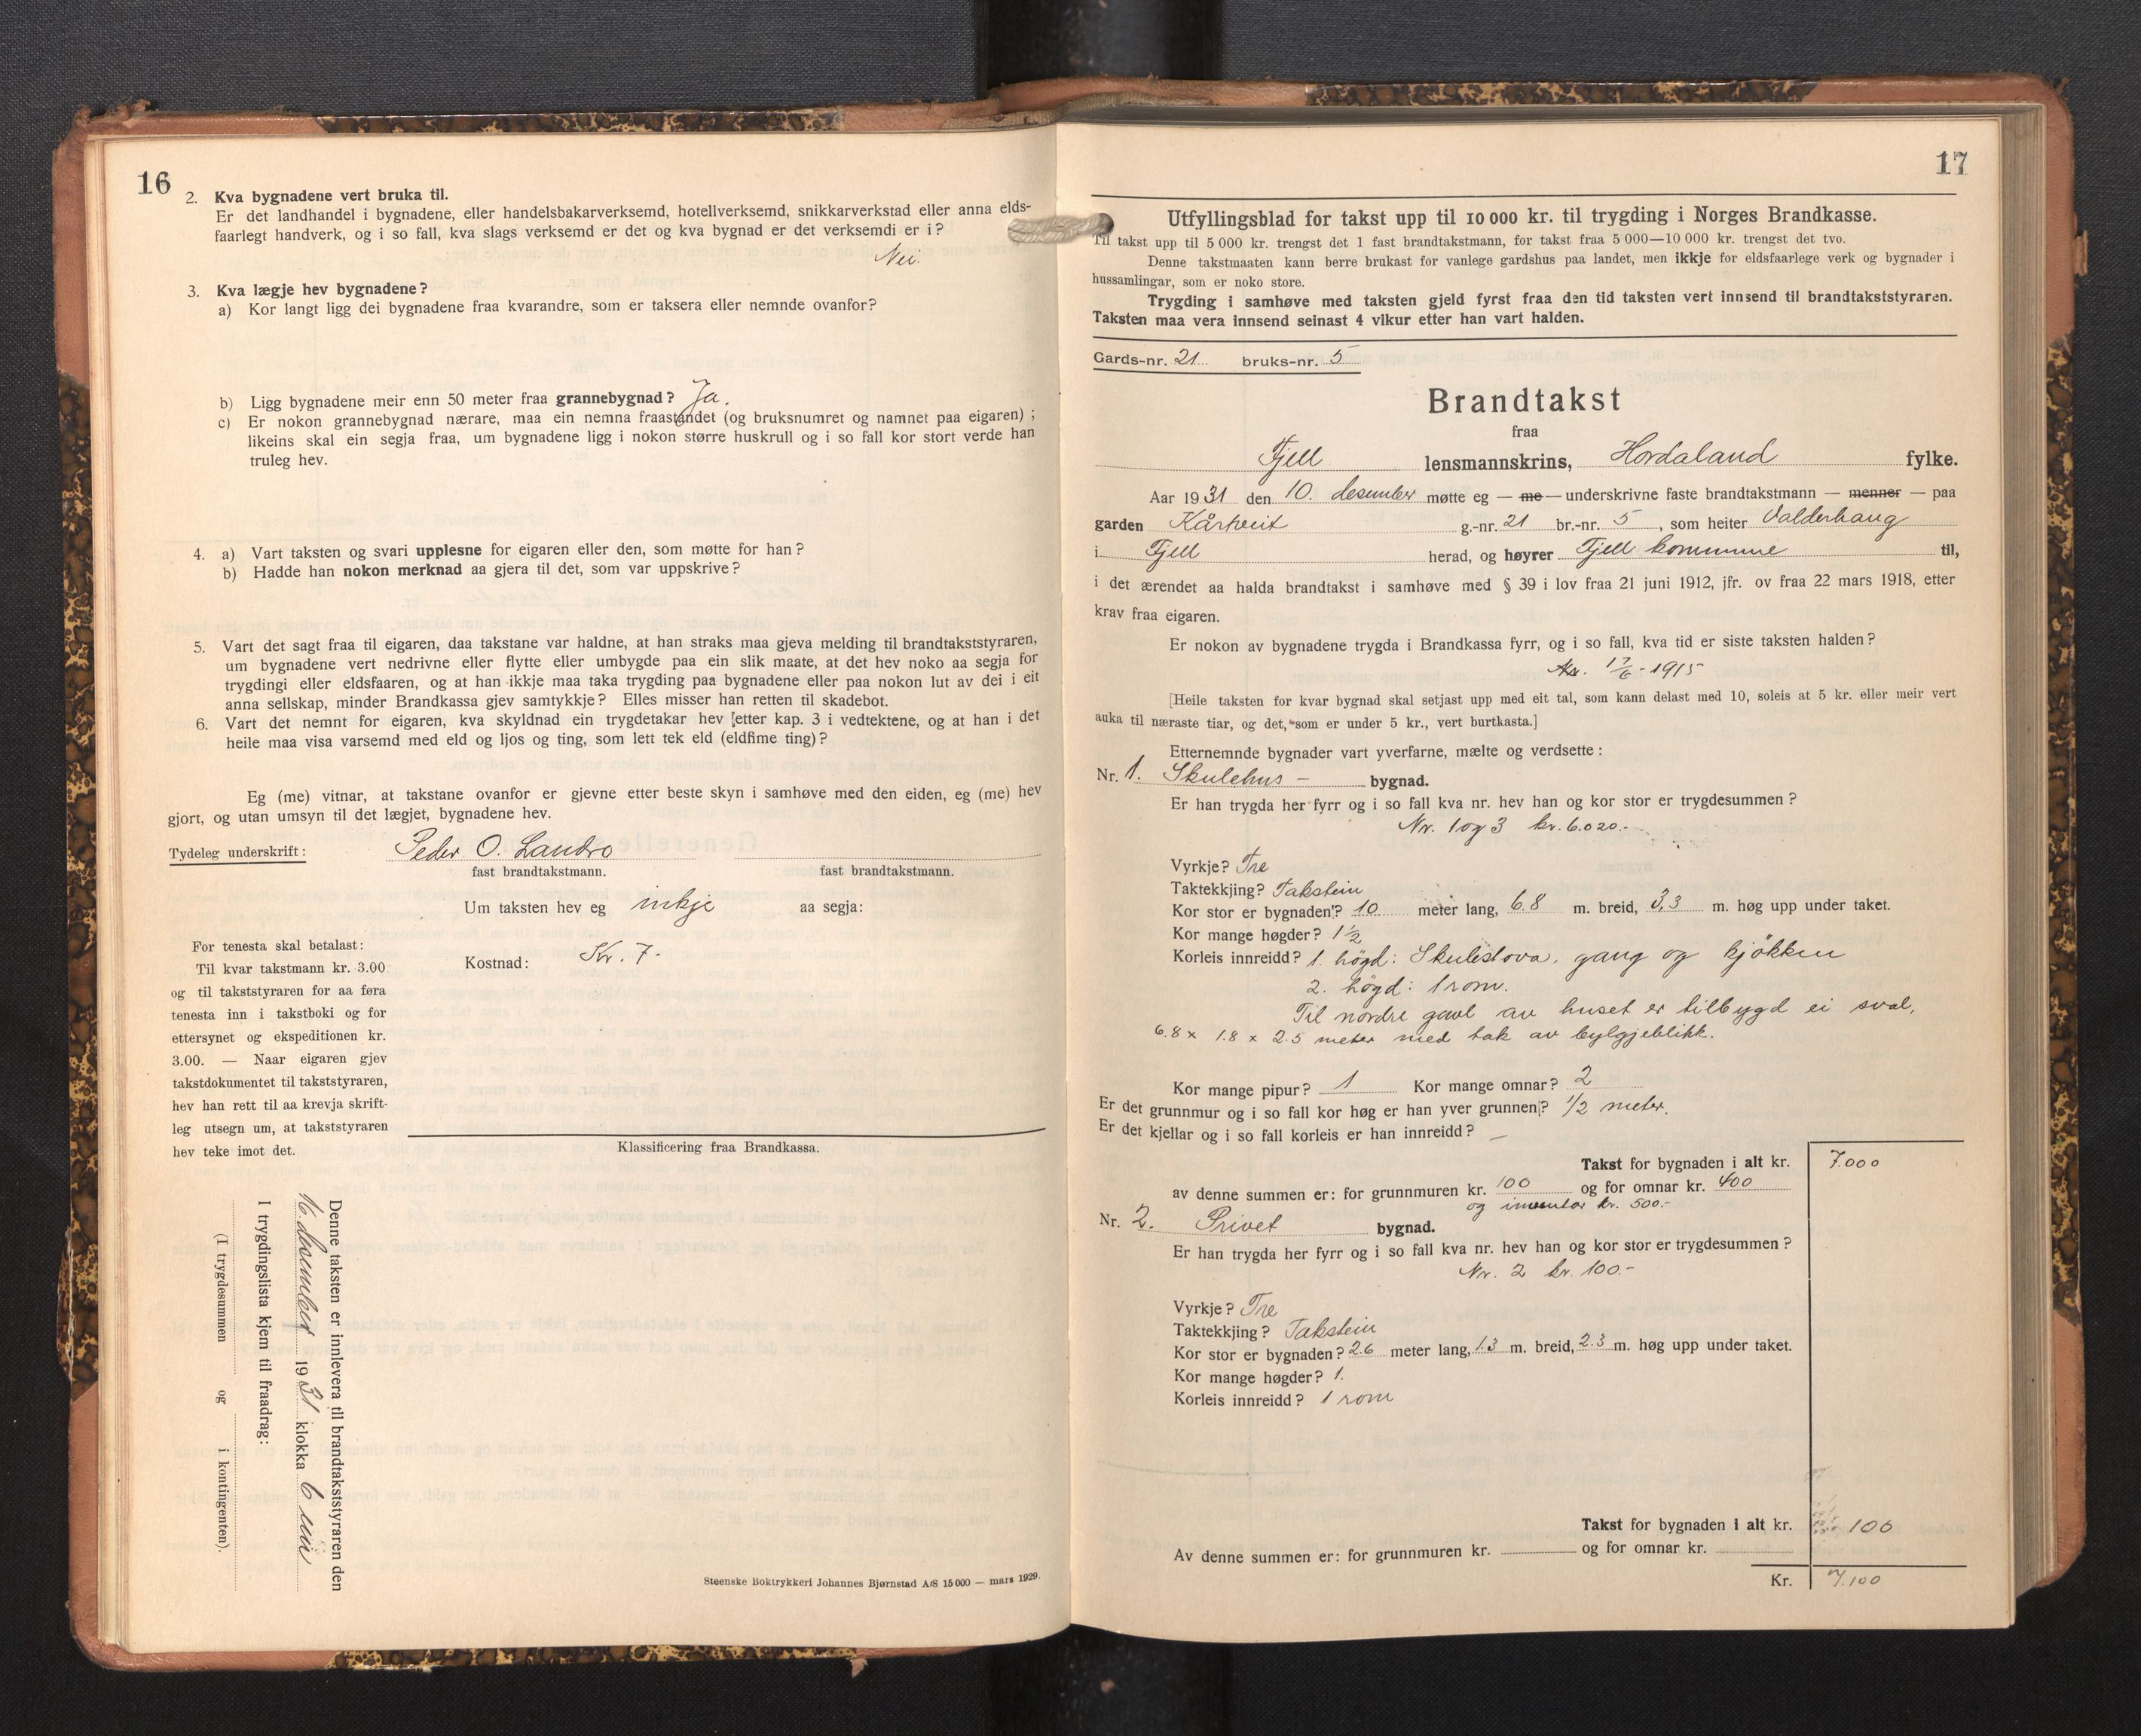 16
2. Kva bygnadene vert bruka til.
Er det landhandel i bygnadene, eller handelsbakarverksemd, hotellverksemd, snikkarverkstad eller anna elds-
faarlegt handverk, og i so fall, kva slags verksemd er det og kva bygnad er det verksemdi er i?
Nei.
3. Kva lægje hev bygnadene?
a) Kor langt ligg dei bygnadene fraa kvarandre, som er taksera eller nemnde ovanfor?
b) Ligg bygnadene meir enn 50 meter fraa grannebygnad? Ja.
c) Er nokon grannebygnad nærare, maa ein nemna fraastandet (og bruksnumret og namnet paa eigaren) ;
likeins skal ein segja fraa, um bygnadene ligg i nokon større huskrull og i so fall kor stort verde han
truleg hev.
4. a) Vart taksten og svari upplesne for eigaren eller den, som møtte for han?
b) Hadde han nokon merknad aa gjera til det, som var uppskrive?
5. Vart det sagt fraa til eigaren, daa takstane var haldne, at han straks maa gjeva melding til brandtakststyraren,
um bygnadene vert nedrivne eller flytte eller umbygde paa ein slik maate, at det hev noko aa segja for
trygdingi eller eldsfaaren, og at han ikkje maa taka trygding paa bygnadene eller paa nokon lut av dei i eit
anna selskap, minder Brandkassa gjev samtykkje? Elles misser han retten til skadebot.
6. Vart det nemnt for eigaren, kva skyldnad ein trygdetakar hev etter kap. 3 i vedtektene, og at han i det
heile maa visa varsemd med eld og ljos og ting, som lett tek eld (eldfime ting)?
Eg (me) vitnar, at takstane ovanfor er gjevne etter beste skyn i samhøve med den eiden, eg (me) hev
gjort, og utan umsyn til det lægjet, bygnadene hev.
Tydeleg underskrift: Peder O. Landro
fast brandtakstmann. fast brandtakstmann.
Um taksten hev eg inkje aa segja:
Kostnad: Kr. 7-
For tenesta skal betalast:
Til kvar takstmann kr. 3.00
og til takststyraren for aa føra
tenesta inn i takstboki og for
ettersynet og ekspeditionen kr.
3.00. — Naar eigaren gjev
takstdokumentet til takststyraren,
hev han rett til aa krevja skrift-
leg utsegn um, at takststyraren
hev teke imot det.
Klassificering fraa Brandkassa.
Denne taksten er innlevera til brandtakststyraren den
16. desember 1931 klokka 6 em
I trygdingslista kjem til fraadrag:
(I trygdesummen og i kontingenten).
Steenske Boktrykkeri Johannes Bjørnstad A/S 15 000 — mars 1929.
17
Utfyllingsblad for takst upp til 10 000 kr. til trygding i Norges Brandkasse.
Til takst upp til 5 000 kr. trengst det 1 fast brandtakstmann, for takst fraa 5 000—10 000 kr. trengst det tvo.
Denne takstmaaten kann berre brukast for vanlege gardshus paa landet, men ikkje for eldsfaarlege verk og bygnader i
hussamlingar, som er noko store.
Trygding i samhøve med taksten gjeld fyrst fraa den tid taksten vert innsend til brandtakststyraren.
Taksten maa vera innsend seinast 4 vikur etter han vart halden.
Gards-nr. 21 bruks-nr. 5
Brandtakst
fraa
Fjell lensmannskrins, Hordaland fylke.
Aar 1931 den 10. desember møtte eg — me — underskrivne faste brandtakstmann — menner — paa
garden Kårtveit g.-nr. 21 br.-nr. 5, som heiter Valderhaug
i Fjell herad, og høyrer Fjell kommune til,
i det ærendet aa halda brandtakst i samhøve med § 39 i lov fraa 21 juni 1912, jfr. ov fraa 22 mars 1918, etter
krav fraa eigaren.
Er nokon av bygnadene trygda i Brandkassa fyrr, og i so fall, kva tid er siste taksten halden?
17/6-1915
[Heile taksten for kvar bygnad skal setjast upp med eit tal, som kann delast med 10, soleis at 5 kr. eller meir vert
auka til næraste tiar, og det, som er under 5 kr., vert burtkasta.]
Etternemnde bygnader vart yverfarne, mælte og verdsette :
Nr. 1. Skulehus - bygnad.
Er han trygda her fyrr og i so fall kva nr. hev han og kor stor er trygdesummen?
Nr. 1 og 3 kr. 6.020.-
Vyrkje? Tre
Taktekkjing? Takstein
Kor stor er bygnaden? 10 meter lang, 6.8 m. breid, 3,3 m. høg upp under taket.
Kor mange høgder? 1½
Korleis innreidd? 1. högd: Skulestova, gang og kjökken
2. högd: 1 rom.
Til nordre gavl av huset er tilbygd ei sval,
6.8 x 1.8 x 2.5 meter med tak av bylgjeblikk.
Kor mange pipur? 1 Kor mange omnar? 2
Er det grunnmur og i so fall kor høg er han yver grunnen? 1/2 meter.
Er det kjellar og i so fall korleis er han innreidd? —
Takst for bygnaden i alt kr. 7.000
av denne summen er: for grunnmuren kr. 100 og for omnar kr. 400
og inventar kr. 500.-
Nr. 2. Privet bygnad.
Er han trygda her fyrr og i so fall kva nr. hev han og kor stor er trygdesummen?
Nr. 2 kr. 100.-
Vyrkje? Tre
Taktekkjing? Takstein
Kor stor er bygnaden? 2.6 meter lang, 1.3 m. breid, 2.3 m. høg upp under taket.
Kor mange høgder? 1.
Korleis innreidd? 1 rom
Takst for bygnaden i alt kr. 100
Av denne summen er: for grunnmuren kr. og for omnar kr.
Kr. 7.100